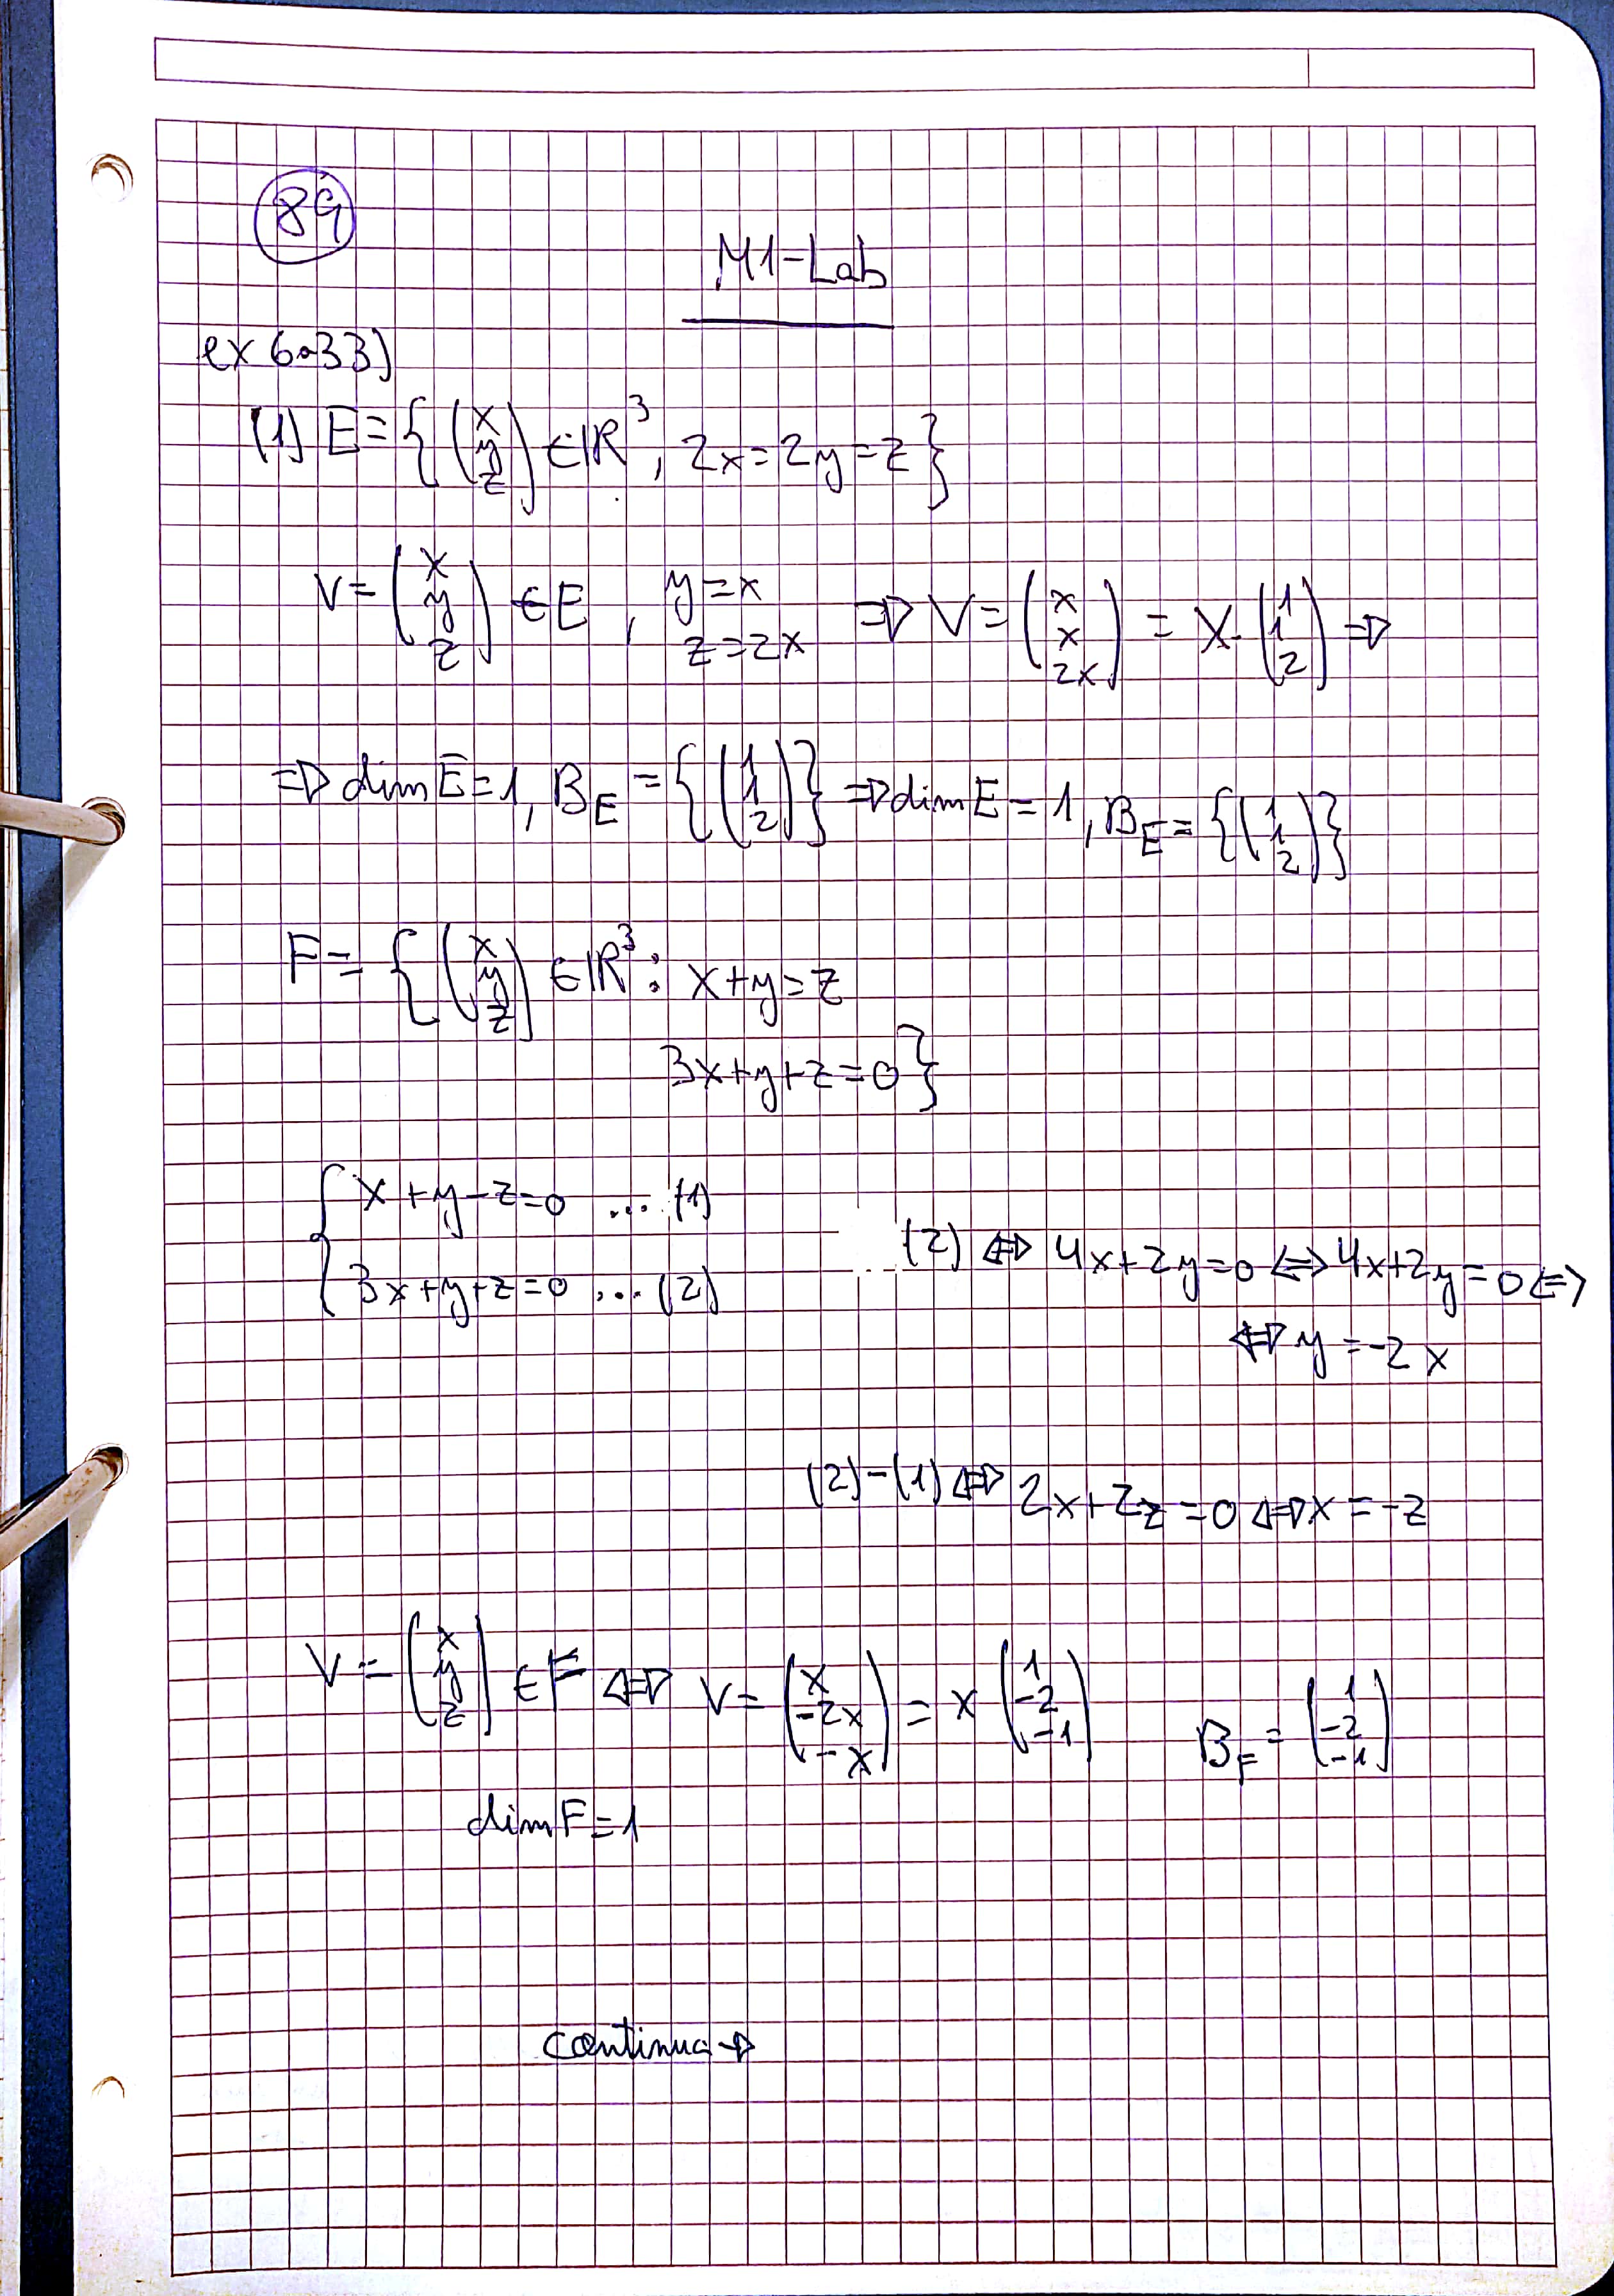 89
M1-Lab
ex 6.33)
(1) E = { (x y z) ∈ ℝ³, 2x = 2y = z }
v = (x y z) ∈ E, y = x z = 2x ⇒ v = (x x 2x) = x · (1 1 2) ⇒
⇒ dim E = 1, B_E = { (1 1 2) } ⇒ dim E = 1, B_E = { (1 1 2) }
F = { (x y z) ∈ ℝ³ : x + y = z
3x + y + z = 0 }
x + y - z = 0 ... (1)
3x + y + z = 0 ... (2)
(2) ⇔ 4x + 2y = 0 ⇔ 4x + 2y = 0 ⇔
⇔ y = -2x
(2) - (1) ⇔ 2x + 2z = 0 ⇔ x = -z
v = (x y z) ∈ F ⇔ v = (x -2x -x) = x (1 -2 -1) B_F = (1 -2 -1)
dim F = 1
continua →